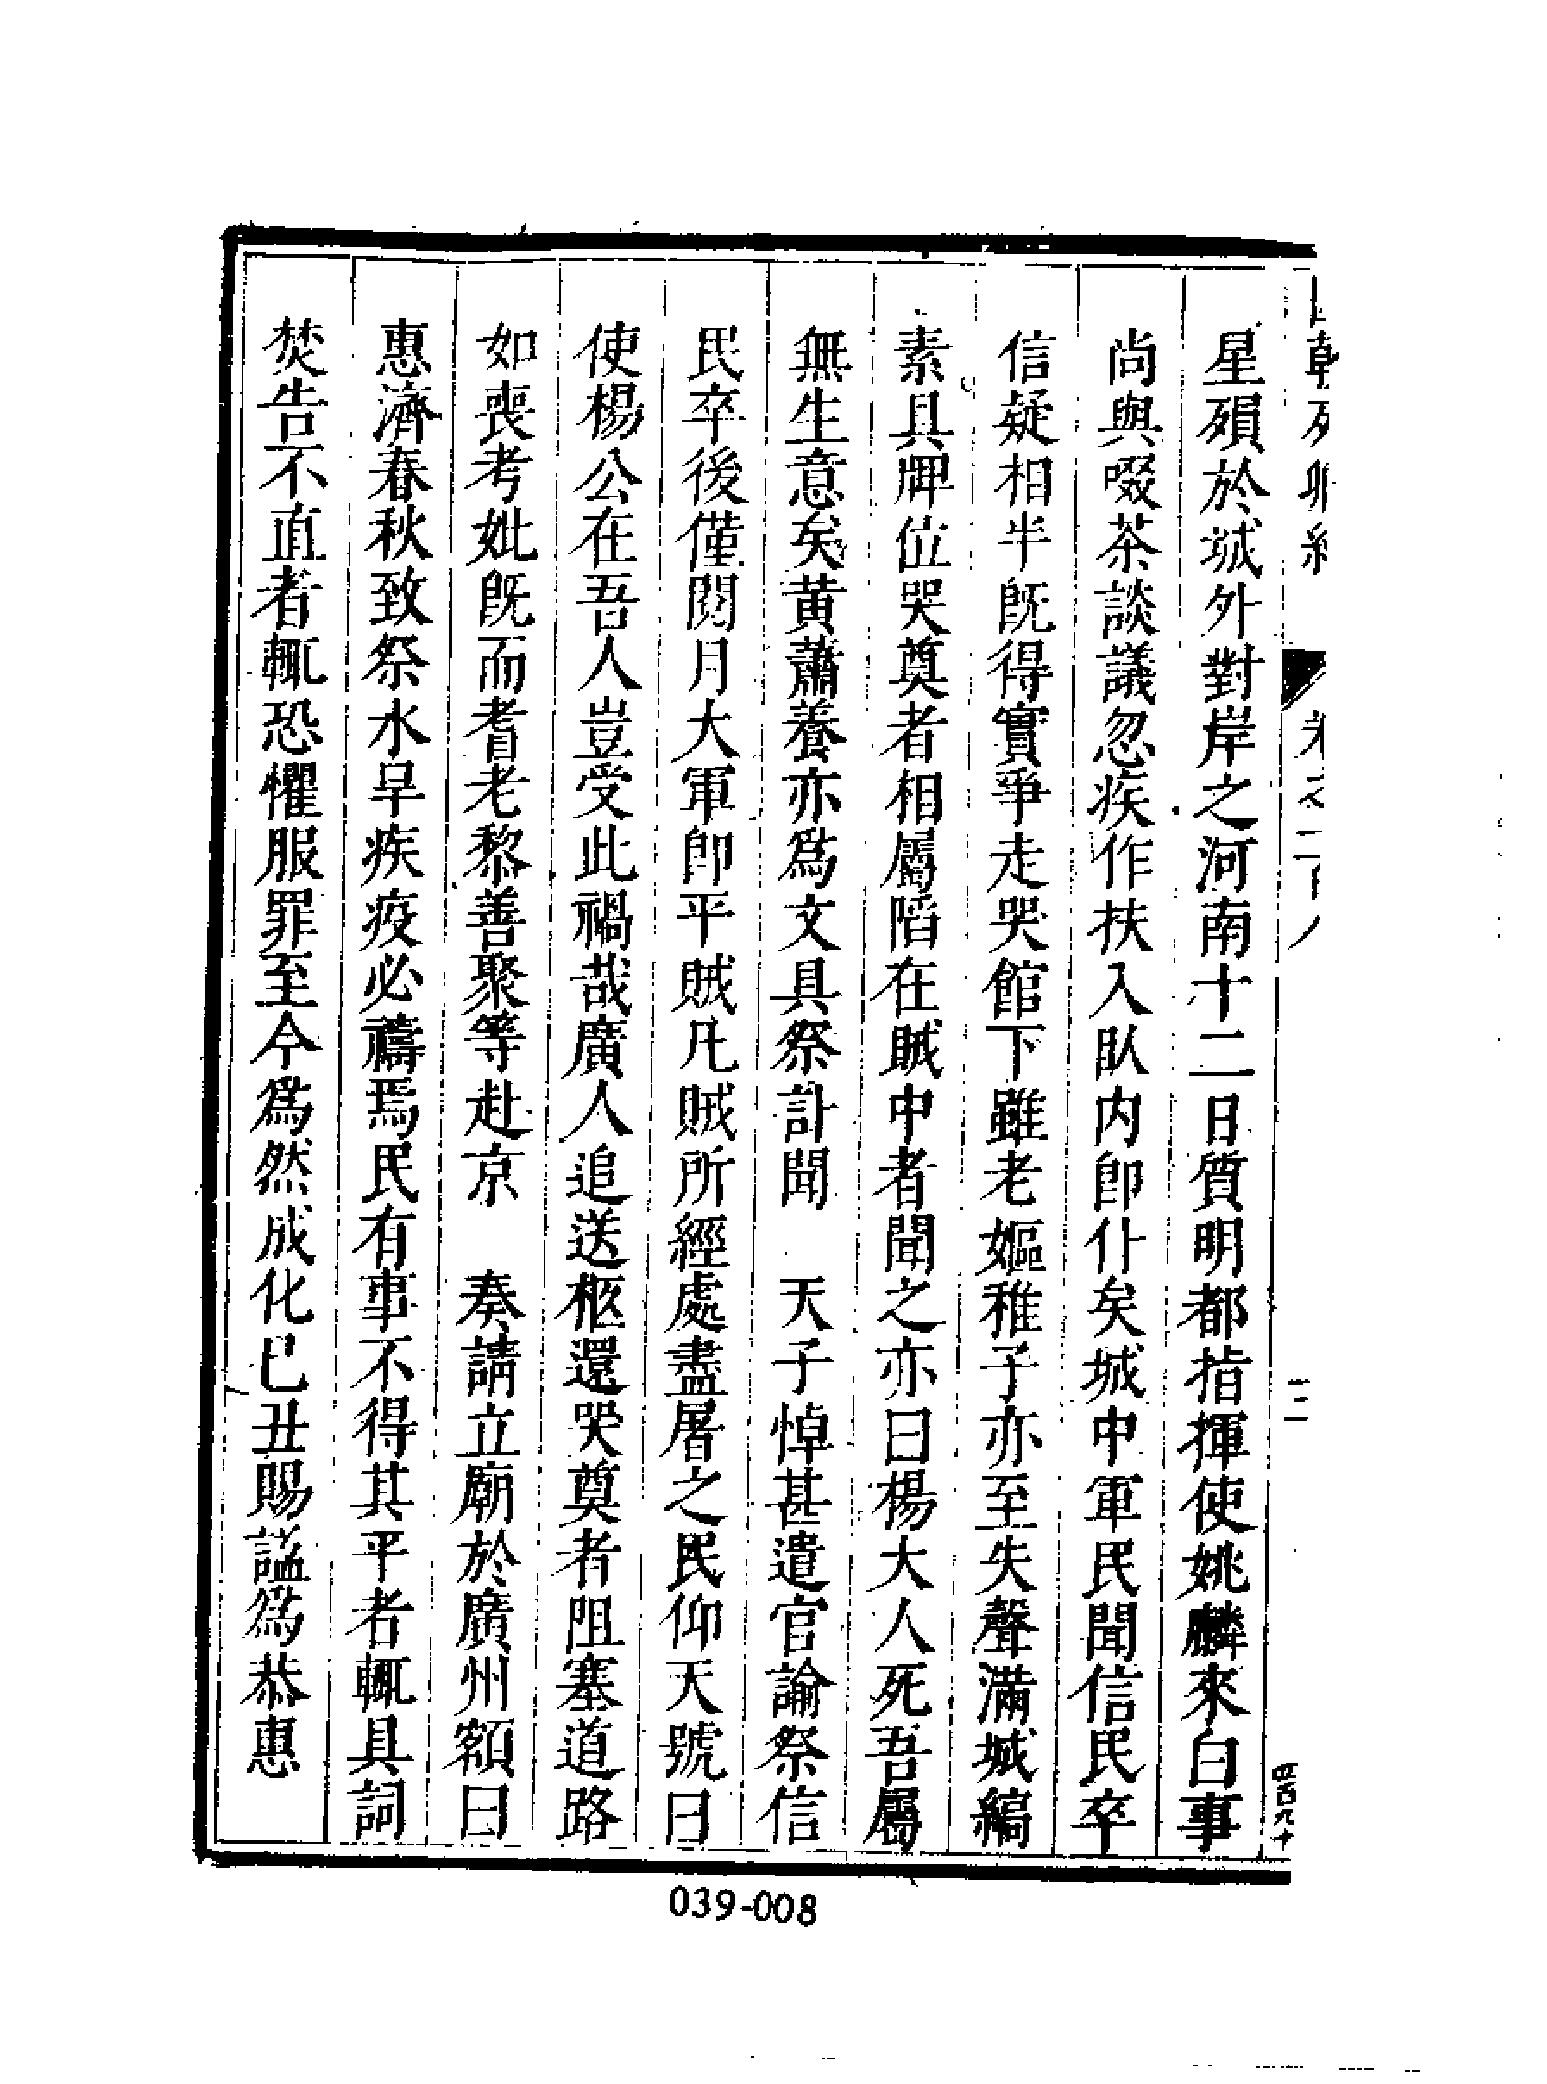 星殞於城外對岸之河南十二日質明都指揮使姚麟來白事
尚與啜茶談議忽疾作扶入臥内卽仆矣城中軍民聞信民卒
信疑相半旣得實爭走哭館下雖老嫗稚子亦至失聲滿城縞
素具牌位哭奠者相屬陷在賊中者聞之亦曰楊大人死吾屬
無生意矣黄蕭養亦爲文具祭訃聞　天子悼甚遣官諭祭信
民卒後僅閱月大軍卽平賊凡賊所經處盡屠之民仰天號曰
使楊公在吾人豈受此禍哉廣人追送柩還哭奠者阻塞道路
如喪考妣旣而耆老黎善聚等赴京　奏請立廟於廣州額曰
惠濟春秋致祭水旱疾疫必禱焉民有事不得其平者輒具詞
焚告不直者輒恐懼服罪至今爲然成化己丑賜諡爲恭惠
039-008